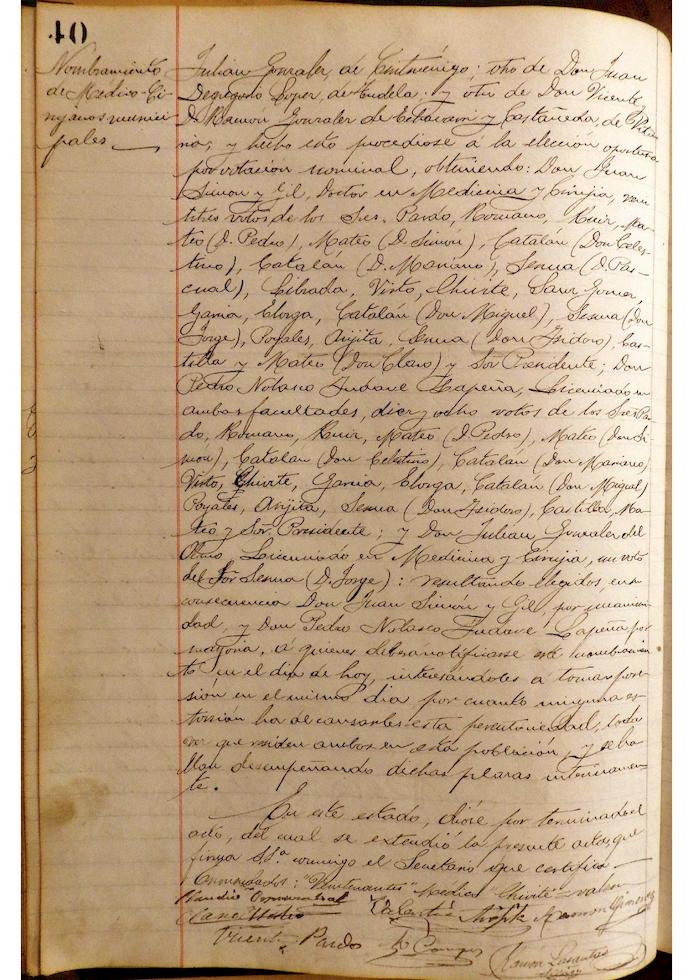 40
Nombramiento
de Medico-Ci-
rujanos munici
pales
Julian Gonzalez, de Cintruénigo; otro de Don Juan
Degregorio Lopez, de Tudela; y otro de Don Vicente
D. Ramon Gonzalez de Echávarri y Castañeda, de
y hecho esto procediose á la elección oportuna
por votación nominal, obteniendo: Don Juan
Simón y Gil, Doctor en Medicina y Cirujia, vein
titres votos de los Sres. Pardo, Romano, Ruiz, Ma-
teo (D. Pedro), Mateo (D. Simón), Catalán (Don Celes-
tino), Catalán (D. Mariano), Sesma (D. Pas-
cual), Librada, Virto, Chivite, Sanz Gomez,
Garcia, Elorga, Catalán (Don Miguel), Sesma (Don
Jorge), Poyales, Anjita, Sesma (Don Isidoro), Cas-
tilla y Mateo (Don Claro) y Sor. Presidente; Don
Pedro Nolasco Yudave Lapeña, Licenciado en
ambas facultades, diez y ocho votos de los Sres Par
do, Romano, Ruiz, Mateo (D. Pedro), Mateo (Don Si
mon), Catalán (Don Celestino), Catalán (Don Mariano)
Virto, Chivite, Garcia, Elorga, Catalán (Don Miguel)
Poyales, Anjita, Sesma (Don Isidoro), Castilla, Ma-
teo y Sor. Presidente; y Don Julián Gonzalez del
Olmo, Licenciado en Medicina y Cirujia, un voto
del Sor Sesma (D. Jorge): resultando elegidos, en su
consecuencia Don Juan Simón y Gil, por unanimi
dad, y Don Pedro Nolasco Yudave Lapeña por
mayoria, á quienes deberá notificarse este nombramien
to en el dia de hoy, interesandoles á tomar pose-
sión en el mismo dia por cuanto ninguna es-
torsión ha de causarles esta perentoriedad, toda
vez que residen ambos en esta población, y se ha
llan desempeñando dichas plazas interinamen-
te.
En este estado, dióse por terminado el
acto, del cual se extendió la presente acta, que
firma SSª. conmigo el Secretario que certifico.
Enmendados: "Medico" Chivite = valen
Vicente Pardo
Ramon Lasantas